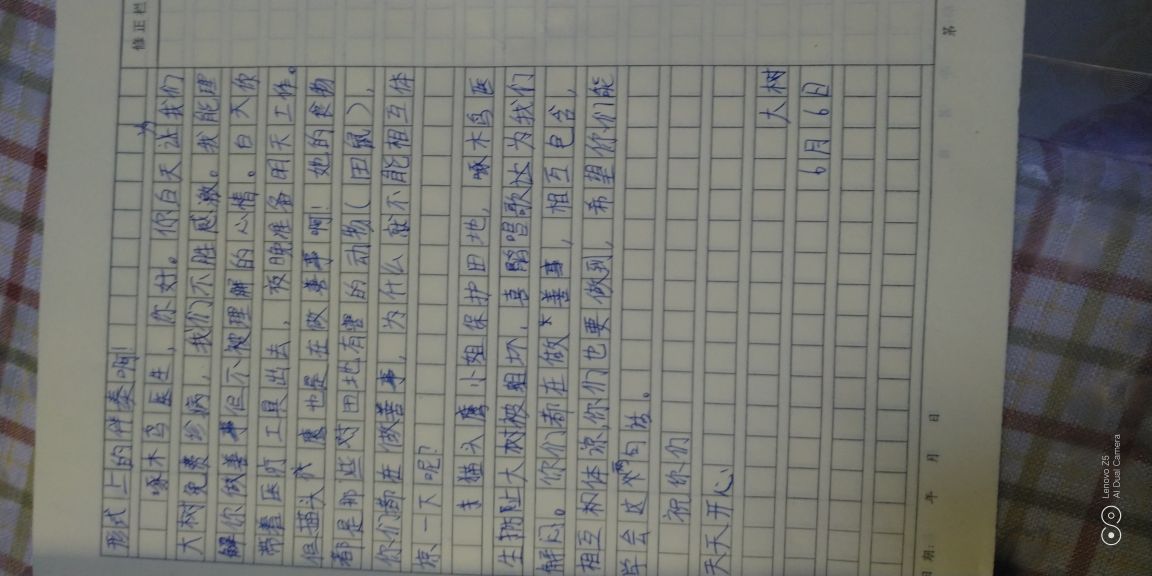 修正栏
形式上的伴奏啊!
啄木鸟医生,你好。你白天为我们
大树免费诊病,我们不胜感激。我能理
解你做善事但不被理解的心情。白天你
带着医疗工具出去,夜晚准备明天工作。
但猫头鹰也是在做善事啊!她的食物
都是那些对田地有害的动物(田鼠),
你们都在做善事,为什么就不能相互体
谅一下呢?
猫头鹰小姐保护田地,啄木鸟医
生阻止大树被蛀坏,喜鹊唱歌达为我们
解闷。你们都在做善事,相互包含,
相互的体谅,你们也要做到,希望你们能
学会这两句话。
祝你们
天天开心
大树
6月6日
日期: 年 月 日
第
Lenovo Z5
AI Dual Camera